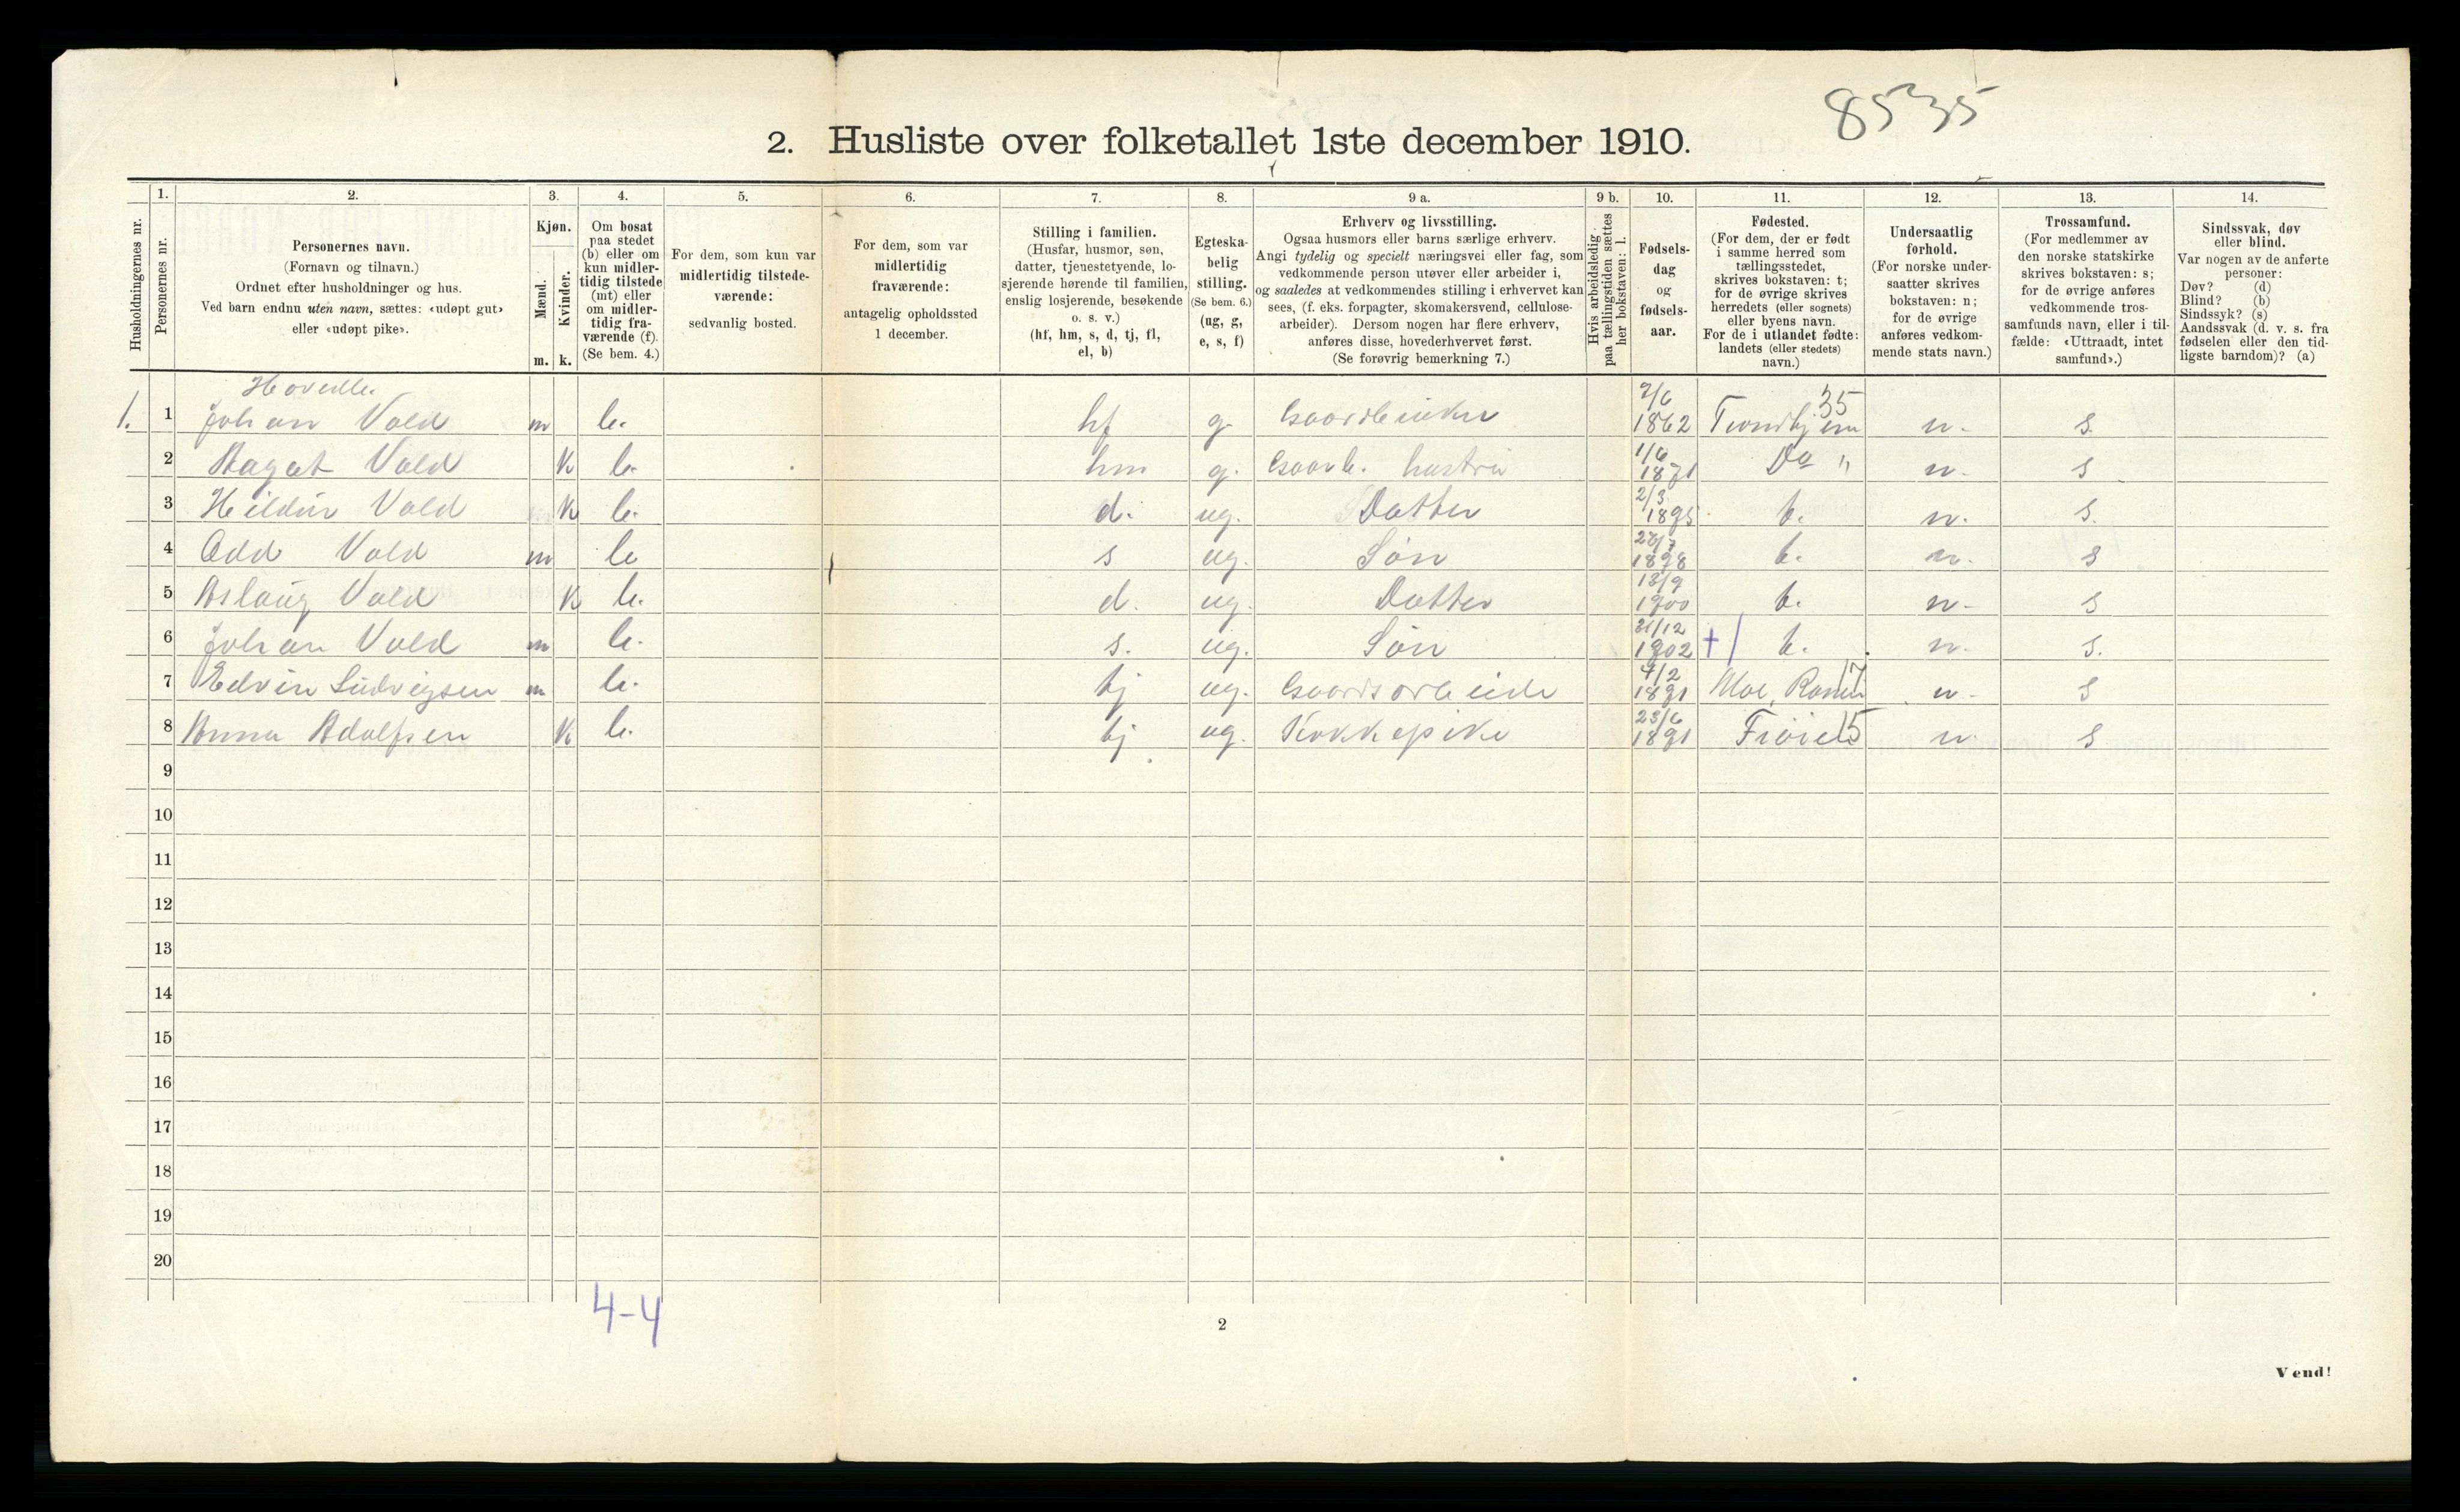 8535
2. Husliste over folketallet 1ste december 1910.
Husholdningernes nr.
1.
Personernes nr.
2.
Personernes navn.
(Fornavn og tilnavn.)
Ordnet efter husholdninger og hus.
Ved barn endnu uten navn, sættes: «udøpt gut»
eller «udøpt pike».
3.
Kjøn.
Mænd.
Kvinder.
m. k.
4.
Om bosat
paa stedet
(b) eller om
kun midler-
tidig tilstede
(mt) eller
om midler-
tidig fra-
værende (f).
(Se bem. 4.)
5.
For dem, som kun var
midlertidig tilstede-
værende:
sedvanlig bosted.
6.
For dem, som var
midlertidig
fraværende:
antagelig opholdssted
1 december.
7.
Stilling i familien.
(Husfar, husmor, søn,
datter, tjenestetyende, lo-
sjerende hørende til familien,
enslig losjerende, besøkende
o. s. v.)
(hf, hm, s, d, tj, fl,
el, b)
8.
Egteska-
belig
stilling.
(Se bem. 6.)
(ug, g,
e, s, f)
9 a.
Erhverv og livsstilling.
Ogsaa husmors eller barns særlige erhverv.
Angi tydelig og specielt næringsvei eller fag, som
vedkommende person utøver eller arbeider i,
og saaledes at vedkommendes stilling i erhvervet kan
sees, (f. eks. forpagter, skomakersvend, cellulose-
arbeider). Dersom nogen har flere erhverv,
anføres disse, hovederhvervet først.
(Se forøvrig bemerkning 7.)
9 b.
Hvis arbeidsledig
paa tællingstiden sættes
her bokstaven: l.
10.
Fødsels-
dag
og
fødsels-
aar.
11.
Fødested.
(For dem, der er født
i samme herred som
tællingsstedet,
skrives bokstaven: t;
for de øvrige skrives
herredets (eller sognets)
eller byens navn.
For de i utlandet fødte:
landets (eller stedets)
navn.)
12.
Undersaatlig
forhold.
(For norske under-
saatter skrives
bokstaven: n;
for de øvrige
anføres vedkom-
mende stats navn.)
13.
Trossamfund.
(For medlemmer av
den norske statskirke
skrives bokstaven: s;
for de øvrige anføres
vedkommende tros-
samfunds navn, eller i til-
fælde: «Uttraadt, intet
samfund».)
14.
Sindssvak, døv
eller blind.
Var nogen av de anførte
personer:
Døv? (d)
Blind? (b)
Sindssyk? (s)
Aandssvak (d. v. s. fra
fødselen eller den tid-
ligste barndom)? (a)
1. 1 Johan Vold m b. hf g. 1862 Trondhjem 35 n. s.
2 Vold k b. hm g. hustru 1/6 1871 Do " n. s
3 Vold k b. d. ug. Datter 2/3 1895 t. n. s.
4 Odd Vold m b s ug. Søn 1898 t. n. s
5 Aslaug Vold k b. d. ug. Datter 13/9 1900 t. n. s
6 Johan Vold m b. s. ug. Søn 31/12 1902 t. n. s.
7 Edvin Ludvigsen m b. tj ug. Gaardsarbeide 4/2 1891 Moe, Ranen 17 n. s
8 Anna Adolfsen k b. tj ug. Kokkepike 23/6 1891 15 n. s
9
10
11
12
13
14
15
16
17
18
19
20
4-4
2
Vend!